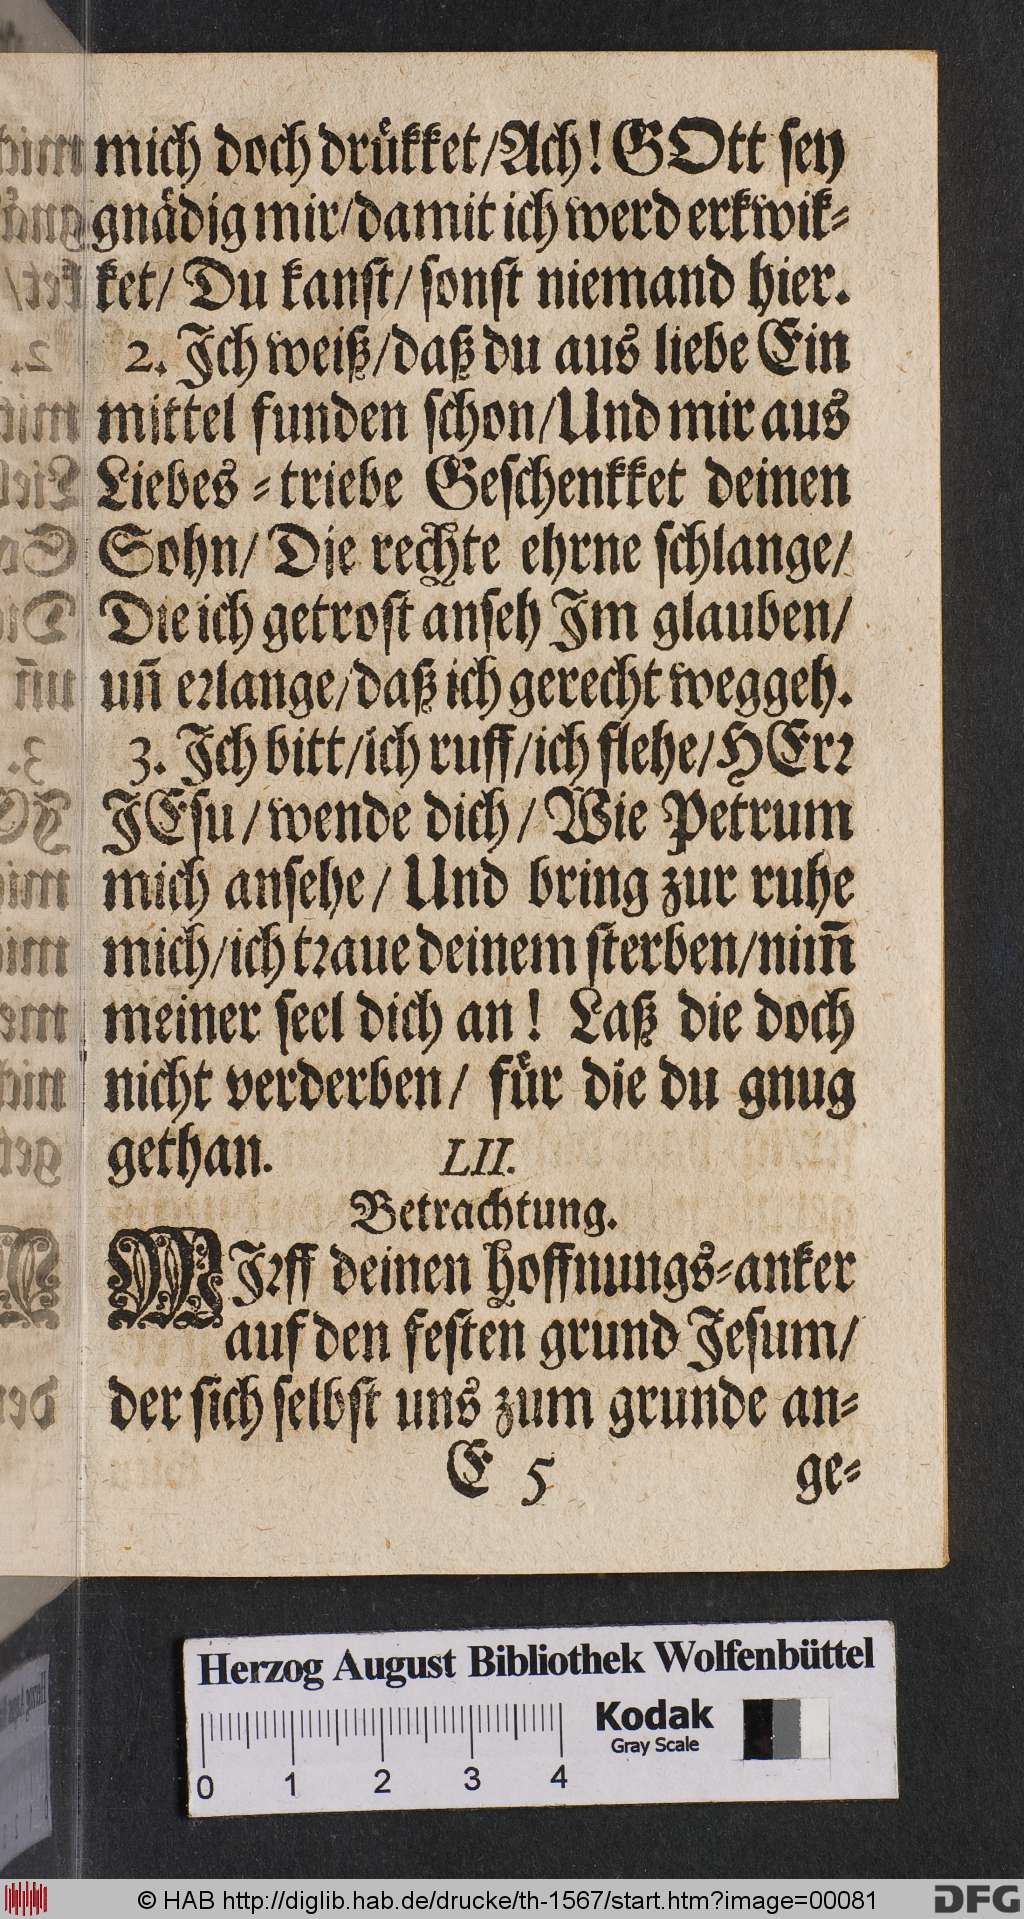 mich doch druͤkket/Ach! GOtt sey
gnaͤdig mir/damit ich werd erkwik-
ket/ Du kanst/ sonst niemand hier.
2. Ich weiß/daß du aus liebe Ein
mittel funden schon/Und mir aus
Liebes-triebe Geschenkket deinen
Sohn/ Die rechte ehrne schlange/
Die ich getrost anseh Im glauben/
uñ erlange/daß ich gerecht weggeh.
3. Ich bitt/ich ruff/ich flehe/HErr
JEsu/wende dich/ Wie Petrum
mich ansehe/ Und bring zur ruhe
mich/ich traue deinem sterben/nim̃
meiner seel dich an! Laß die doch
nicht verderben/ fuͤr die du gnug
gethan. LII.
Betrachtung.
WIrff deinen hoffnungs-anker
auf den festen grund Jesum/
der sich selbst uns zum grunde an-
E 5 ge-
Herzog August Bibliothek Wolfenbüttel
Kodak
Gray Scale
0 1 2 3 4
© HAB http://diglib.hab.de/drucke/th-1567/start.htm?image=00081
DFG